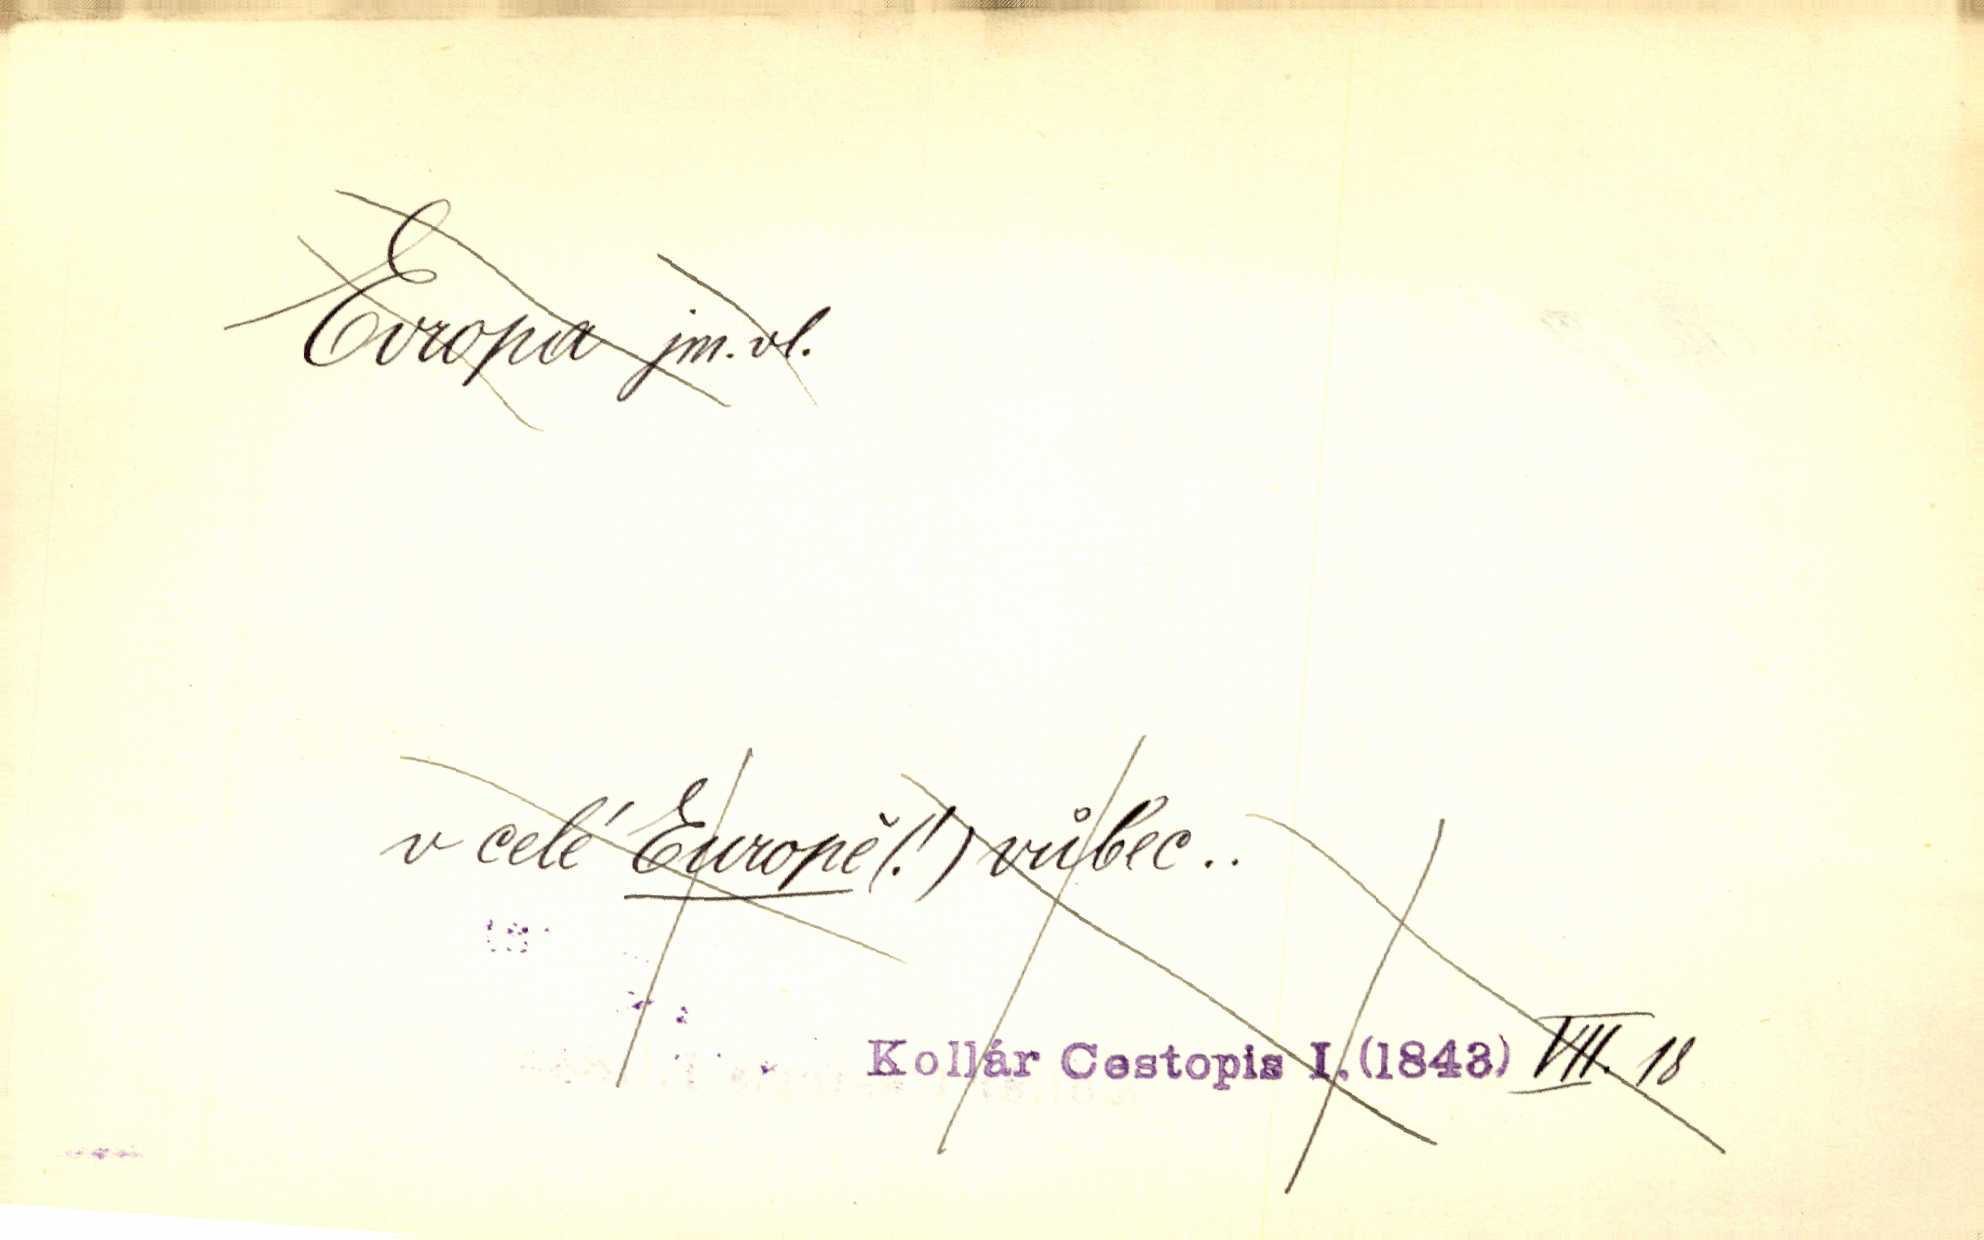 Evropa jm. vl.
v celé Europě (!) vůbec..
Kollár Cestopis I. (1843) VII. 18